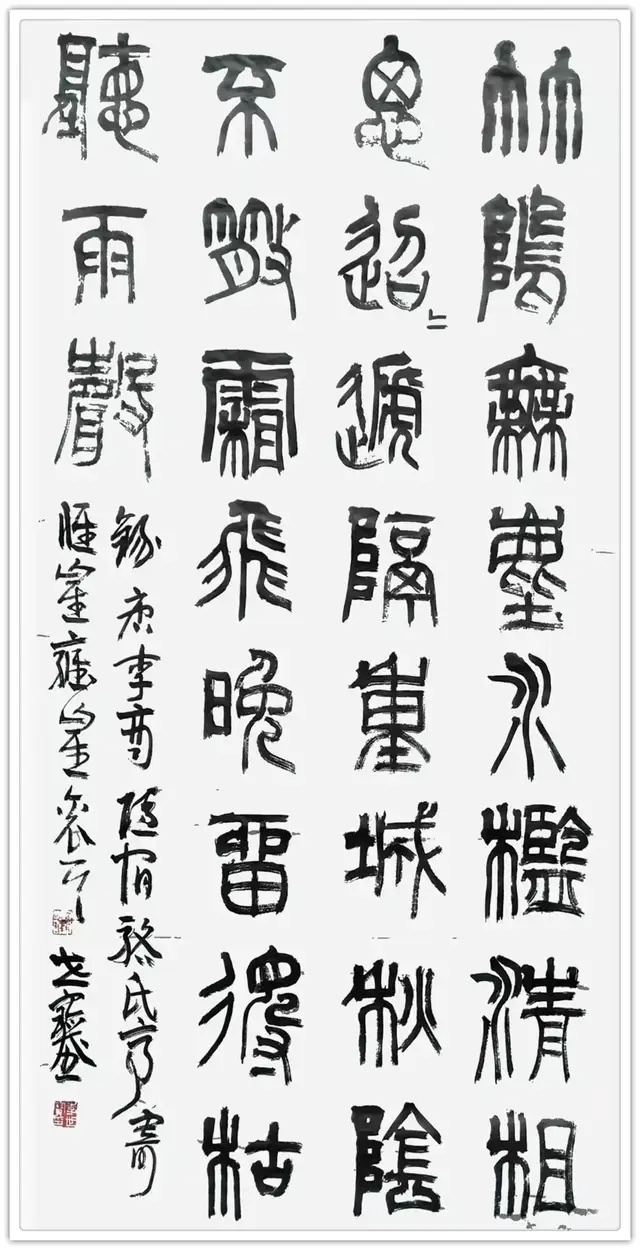 竹隖無塵水檻清相
思迢遞隔重城秋陰
不散霜飛晚留得枯
聽雨聲
錄唐李商隱宿駱氏亭寄
懷崔雍崔袞